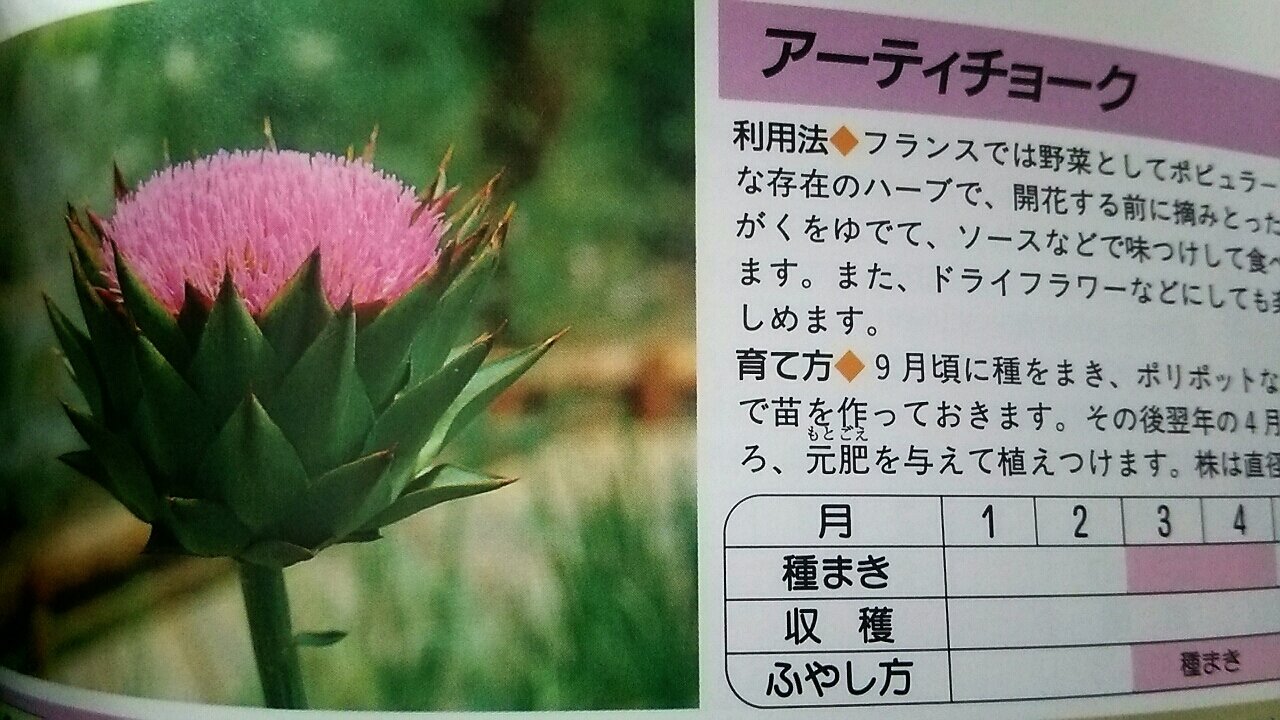 アーティチョーク
利用法◆フランスでは野菜としてポピュラー
な存在のハーブで、開花する前に摘みとった
がくをゆでて、ソースなどで味つけして食べ
ます。また、ドライフラワーなどにしても
しめます。
育て方◆9月頃に種をまき、ポリポットな
で苗を作っておきます。その後翌年の4月
もとごえ
ろ、元肥を与えて植えつけます。株は直径
月 1 2 3 4
種まき
収穫
ふやし方 種まき